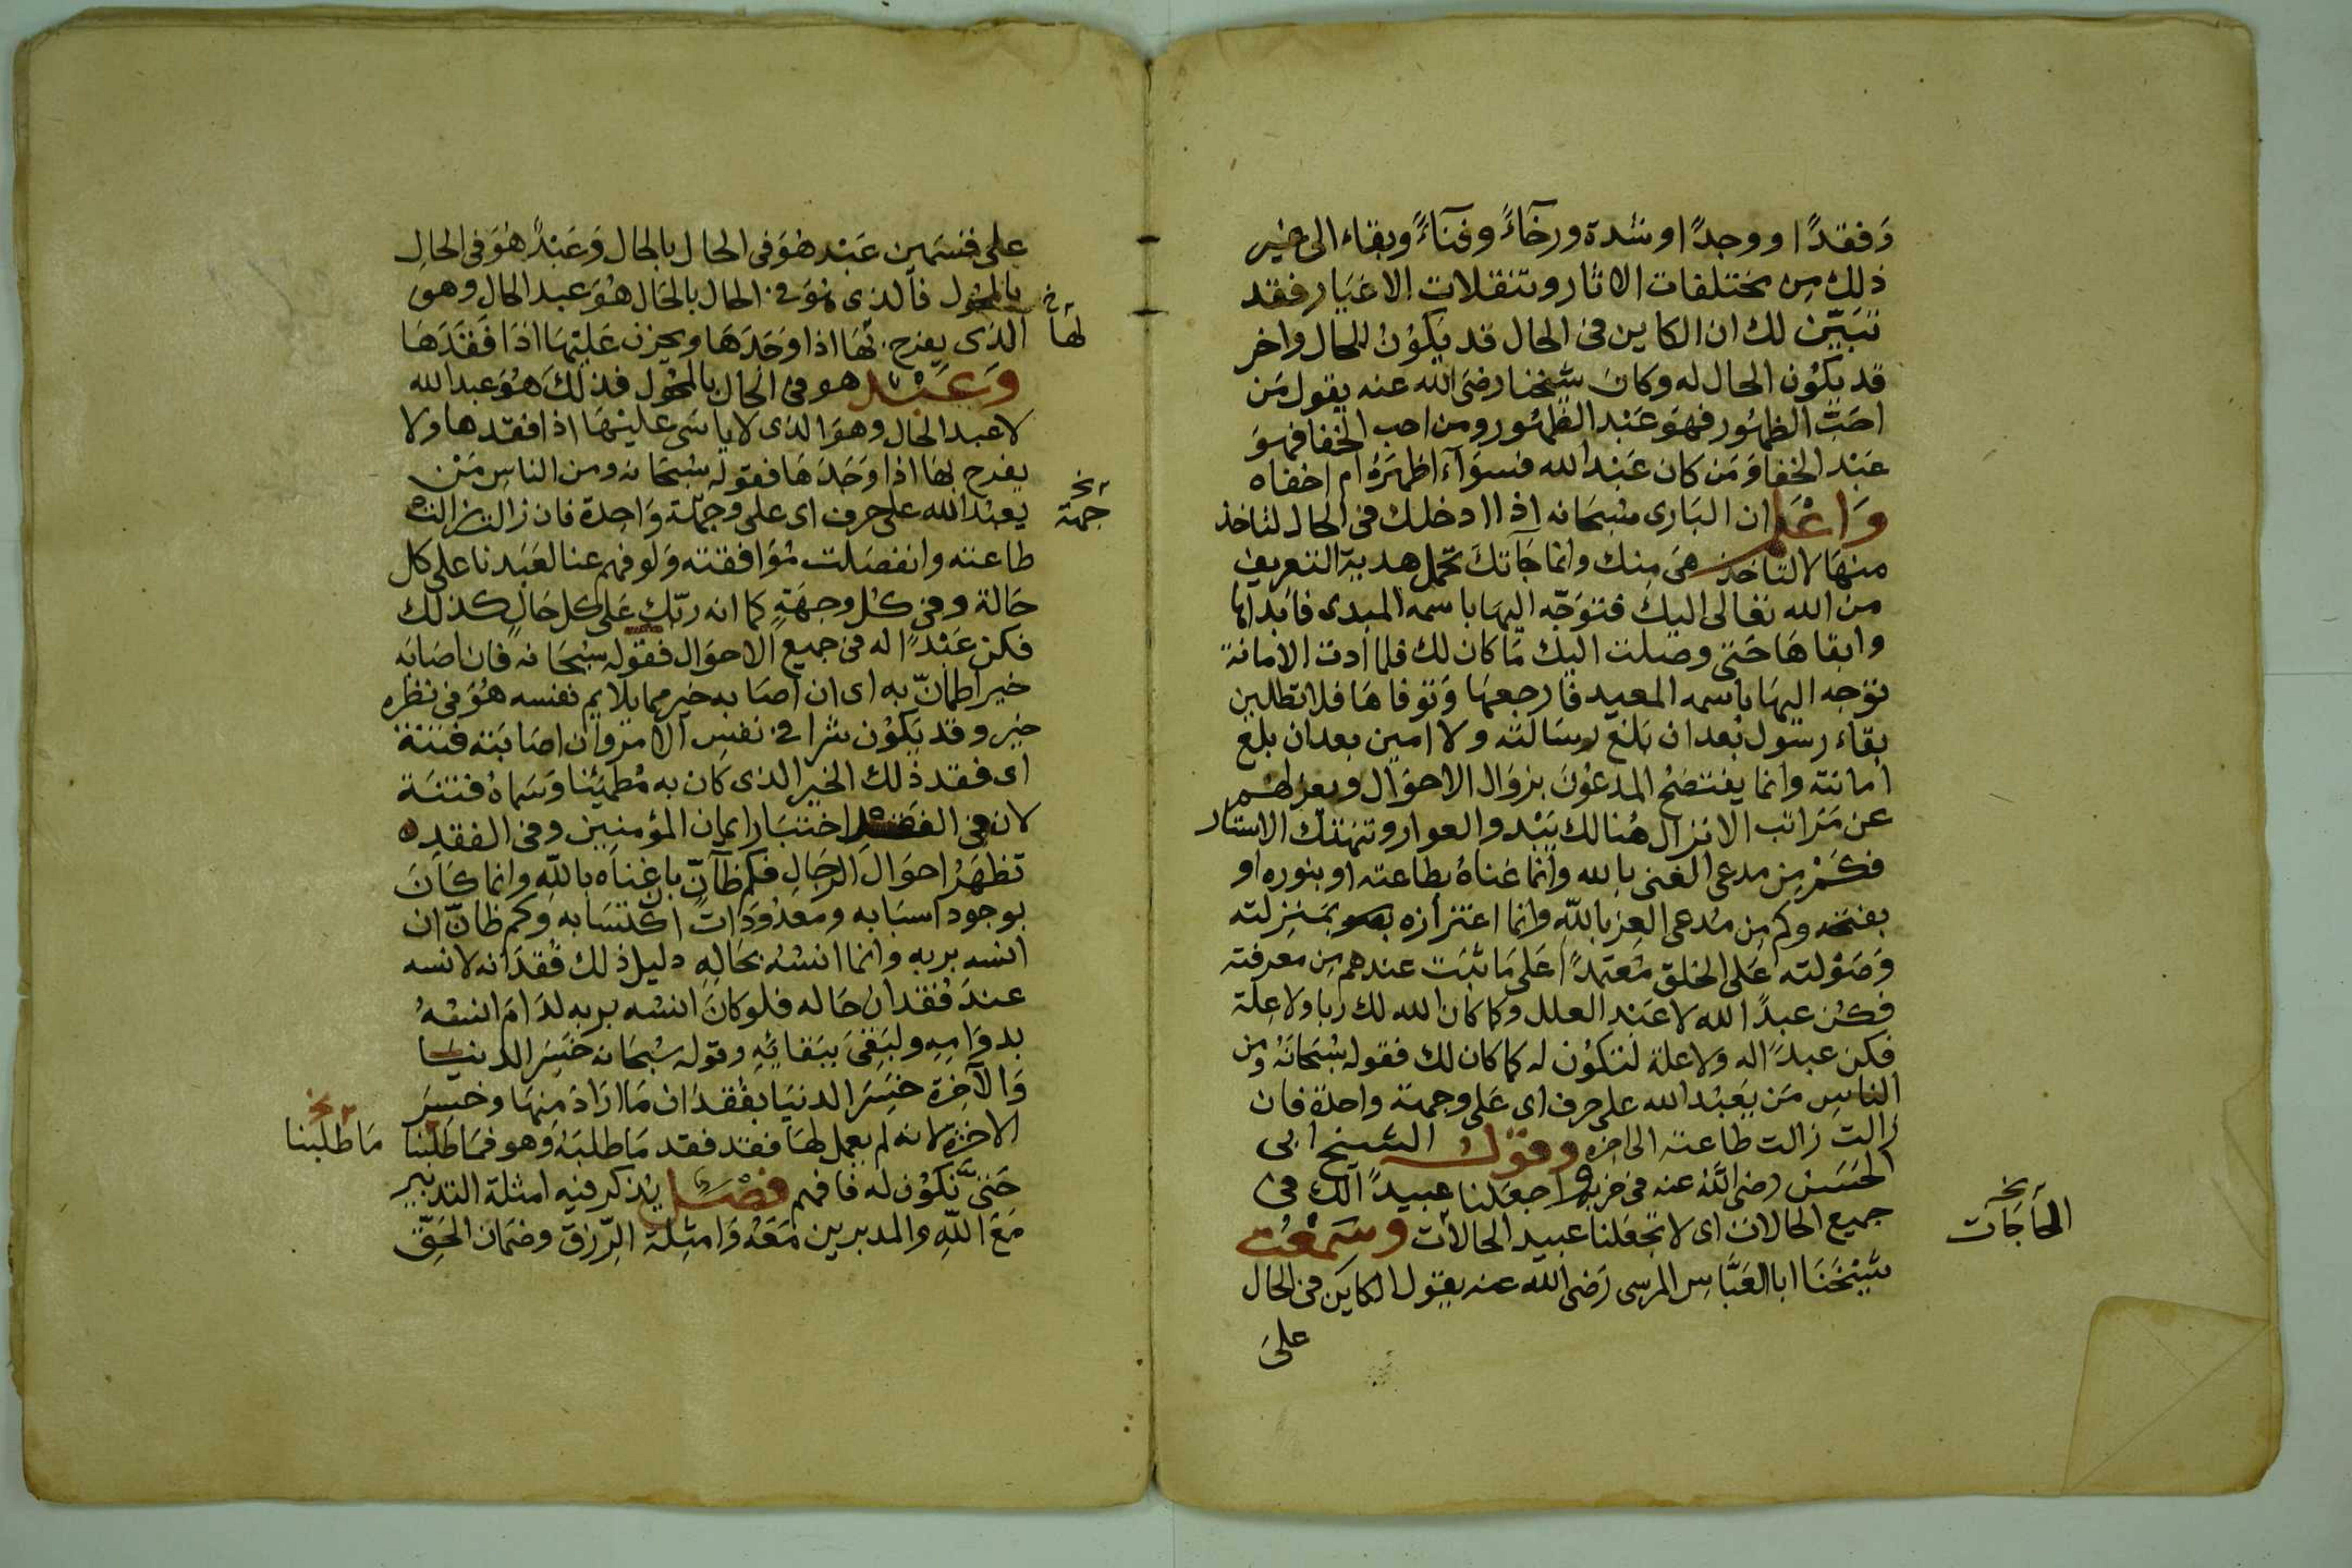 وَفقدًا ووجدًا وشدة ورخآءً وفنآءً وبقاء الى غير
ذلك مِن مختلفات الاثار وتنقلات الاغيَار فقد
تبَيّن لك ان الكاين فى الحال قد يكوُنُ للحال واخر
قد يكوُن الحال له وكانَ شيخنا رضىَ الله عنه يقول مَن
احَبّ الظهوُر فهوَ عَبْد الظهوُر ومن احب الخفا فهوَ
عَبْد الخفا وَمَن كان عَبْد الله فسوَآء اظهرَهُ ام اخفاه
وَاعْلم ان البَارى سُبحَانه اذا ادخلك فى الحال لتاخذ
منهَا لا لتاخذ هىَ مِنك وانما جَآتكَ تحمل هديّة التعريف
من الله تعالى اليكَ فتوَجّه اليهَا باسمه المبدى فابَداها
وابقاهَا حَتى وصَلت اليك مَا كان لك فلما أدت الامانة
توجه اليهَا باسمه المعيد فارجعهَا وَتوفاهَا فلا تطلبن
بقاء رسُول بَعد ان بَلغ رسَالته ولا امين بعد ان بلغ
امانته وانما يفتضحُ المدعوُنَ بزوَال الاحوَال وبعزلهم
عن مَرَاتب الانزال هُنالك يَبْدوا العوار وتنهتك الاستار
فكَمْ مِن مدعى الغنى بالله وانما غناهُ بطاعته او بنوره او
بفتحه وكم مِن مُدعى العِز باللهِ وانما اعتزازه بمَنزلته
وَصَوْلته عَلى الخلق مُعتمدًا عَلى مَا ثبَت عندهم مِن معرفته
فكن عبدًا لله لا عَبْد العلل وكما كان الله لك ربا ولا علة
فكن عبدًا له وَلا علة لتكوُن له كما كان لك فقوله سُبحَانهُ ومن
الناسِ مَن يَعبُد الله على حرف اى عَلى وجهة واحدة فان
زالت زالت طاعته الى اخره وقول الشيخ ابى
الحَسَن رضى اللهُ عنه فى حزبه واجعَلنا عبيدًا لك فى
جميع الحالات اى لا تجعَلنا عبيد الحالات وسَمعْت
الحاجَات نخ
شيْخنَا ابا العَبَّاسِ المرسى رَضى الله عنه يقول الكاين فى الحال
علىَ
على قسمَين عَبْد هوَ فى الحال بالحال وَعَبْدٌ هوَ فى الحالِ
بالمحَوّل فالذى هوَ فى الحال بالحَال هُوَ عبد الحَال وهوَ
لهَا خ
الذى يفرح بهَا اذا وَجَدَهَا ويحزن عَليْهَا اذا فَقدَهَا
وَعَبْد هو فى الحَال بالمحَول فذلكَ هُوَ عبد الله
لا عبد الحَال وهوَ الذى لا ياسَى عليْهَا اذا فقدها ولا
يفرح بهَا اذا وَجَدَهَا فقوله سُبحَانه ومن الناسِ مَنْ
يعبُد الله على حرف اى على وجهة وَاحدة فان زالت زالت
جهة نخ
طاعته وانفصَلت مُوَافقته وَلو فهم عنا لعَبَدنا على كل
حَالة وفى كل وجهَةٍ كما انه رَبّك عَلى كل حَالٍ كذلك
فكن عَبْدًا له فى جميع الاحوَال فقوله سُبحَانه فان اصَابَه
خير اطمأنّ به اى ان اصَابه خير مما يلايم نفسه هُوَ فى نظره
خير وقد يَكوُن شرا فى نفس الامر وان اصَابَته فتنة
اى فقد ذلك الخير الذى كان به مُطمَئنا وَسَماهُ فتنَة
لان فى الفقد اختبَار ايمان المؤمنين وفى الفقد
تظهَرُ احوَال الرجَال فكم ظآنّ بان غناه باللهِ وانما كَانَ
بوجود اسبَابه ومَعدُودَات اكتسَابه وكم ظانّ ان
انسه بربهِ وانما انسُهُ بحَالهِ دليل ذلك فُقدَانه لانسه
عندَ فُقدان حَاله فلو كانَ انسُه بربه لدَامَ انسُهُ
بدوَامِهِ ولبَقىَ ببَقائهِ وقوله سُبحَانه خسِرَ الدنيَا
وَالآخِرة خسِرَ الدنيَا بفُقدَان مَا ارَادَ مِنهَا وخسِرَ
الاخرَة لانه لم يعمل لهَا فقد فقد مَا طلبَهُ وَهو فمَا طَلَبْنا
مَا طلبنا نخ
حَتى نكوُن له فافهم فصْل يُذكر فيهِ امثلة التدبير
مَعَ اللهِ والمدبرين مَعَهُ وَامثلة الرّزق وضمَان الحَقّ